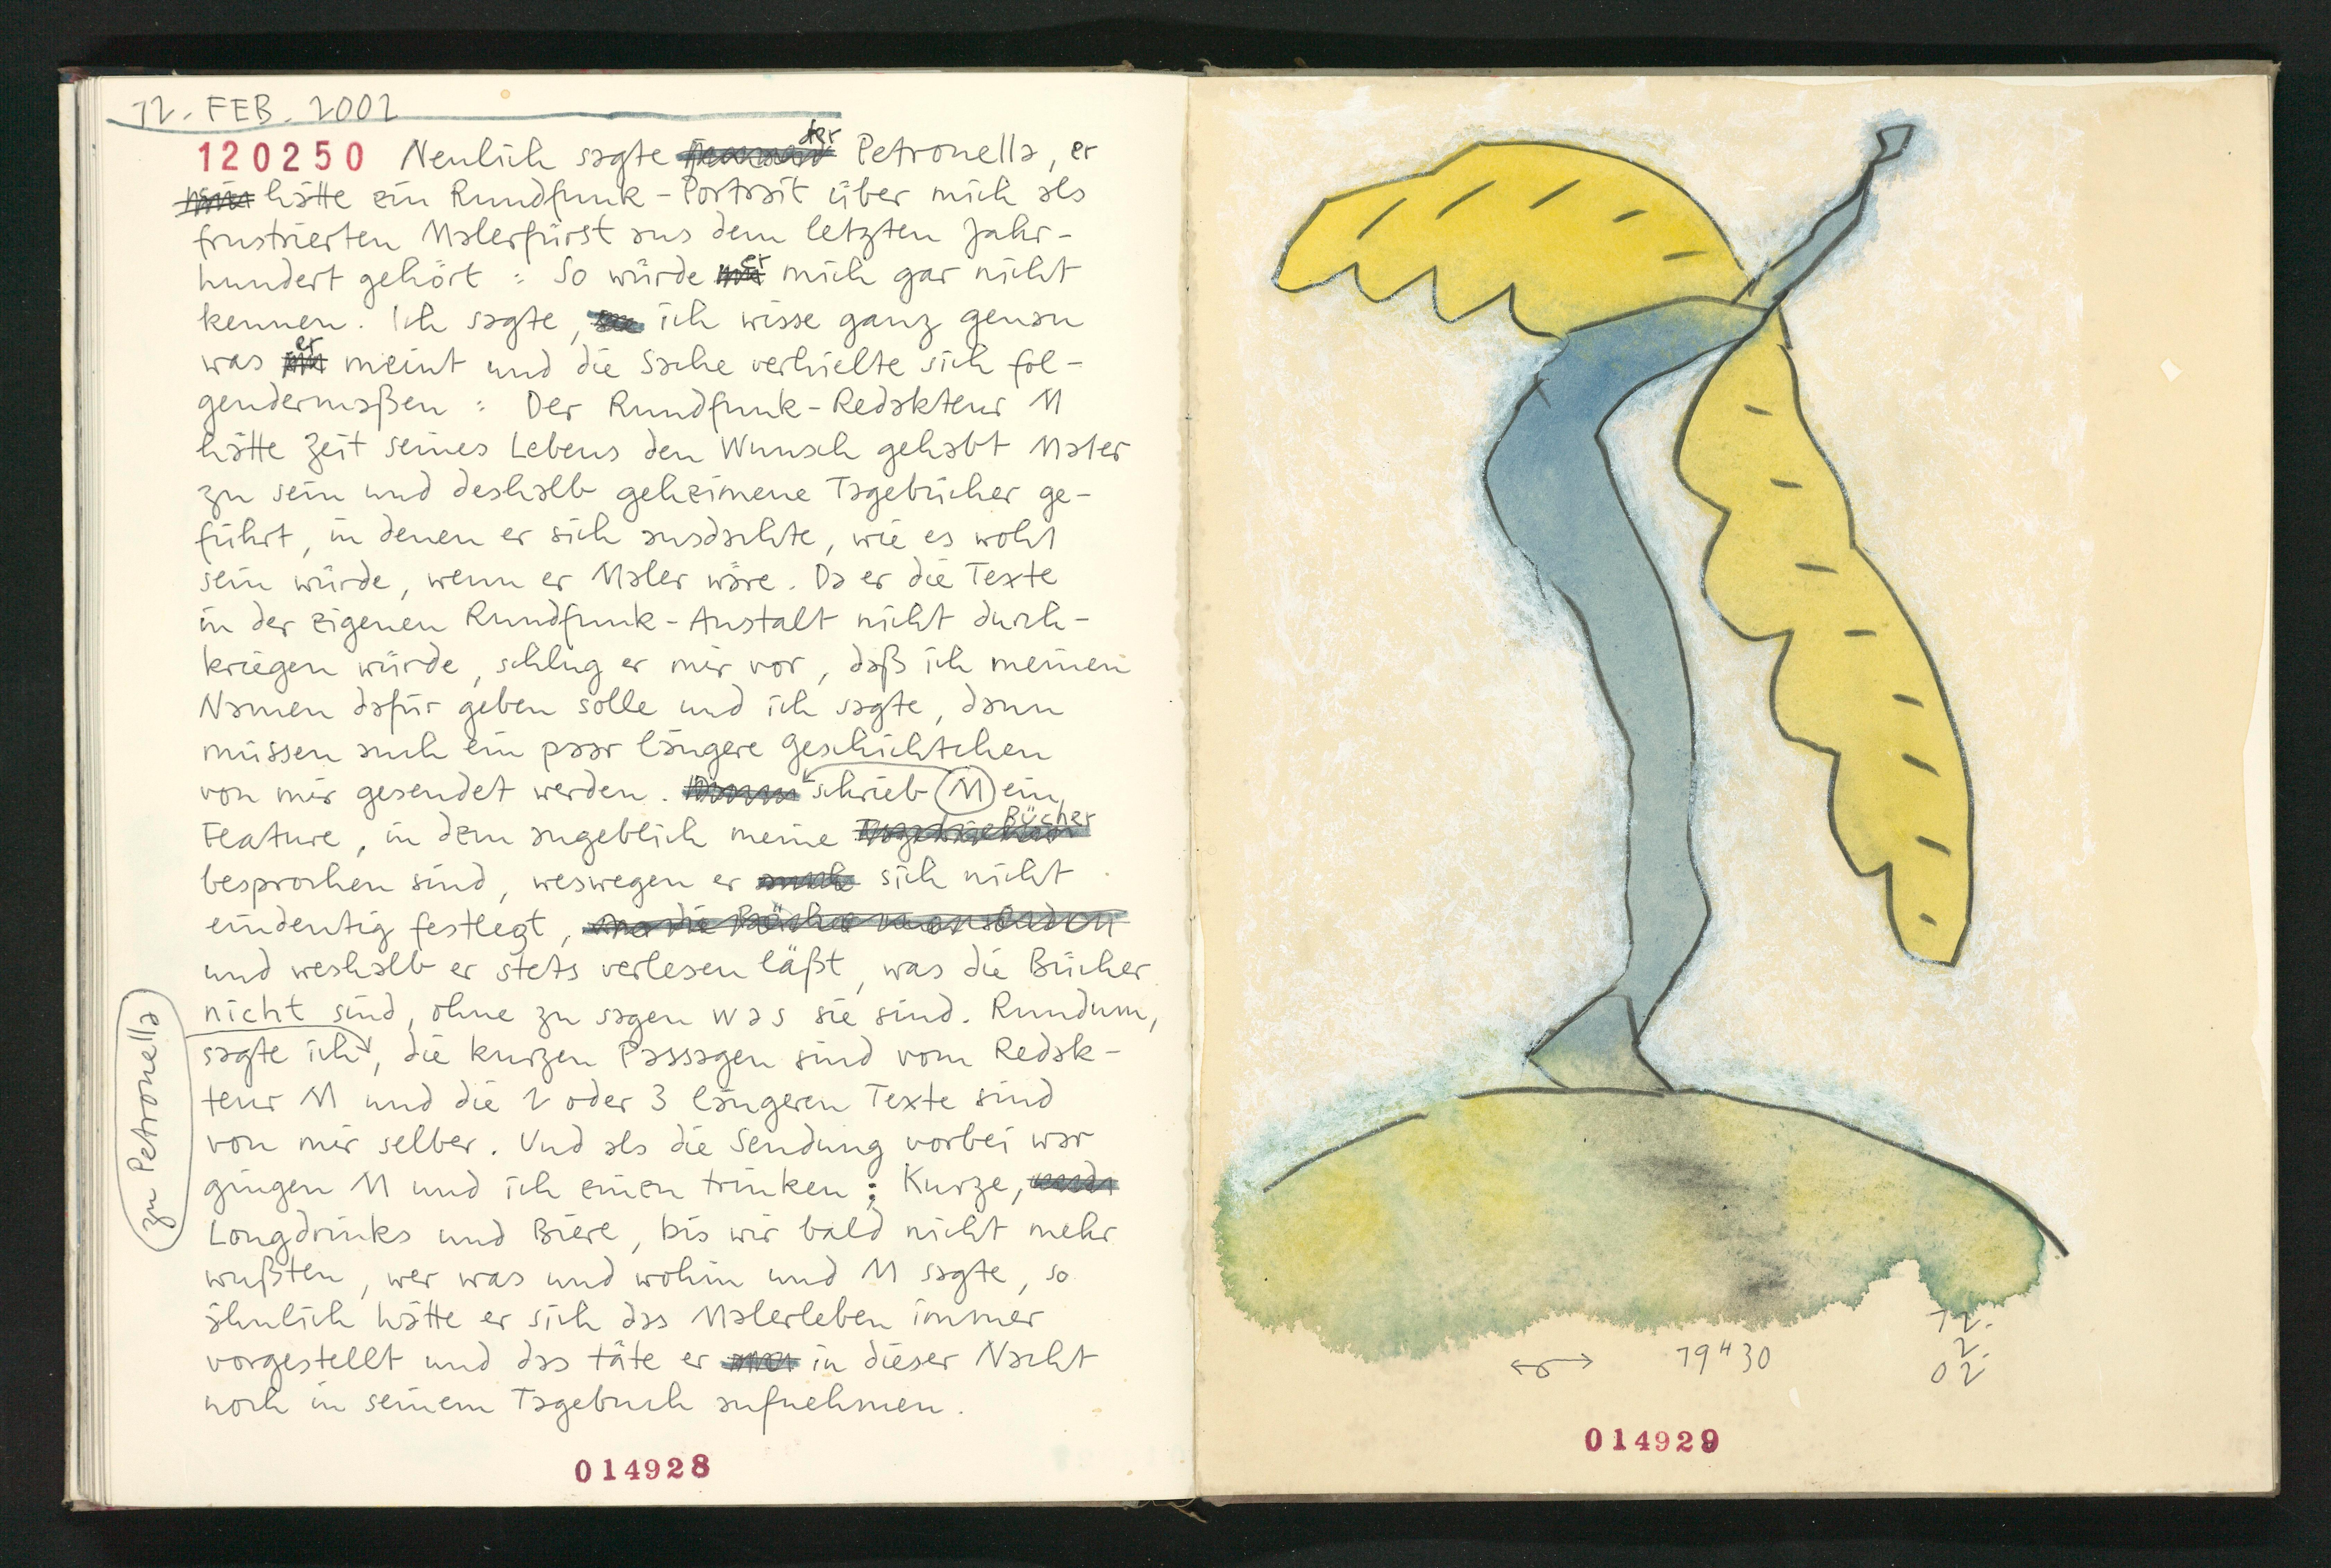 12. FEB. 2002
120250 Neulich sagte der Petronella, er
hätte ein Rundfunk-Portrait über mich als
frustrierten Malerfürst aus dem letzten Jahr-
hundert gehört: So würde er mich gar nicht
kennen. Ich sagte, ich wisse ganz genau
was er meint und die Sache verhielte sich fol-
gendermaßen: Der Rundfunk-Redakteur M
hätte Zeit seines Lebens den Wunsch gehabt Maler
zu sein und deshalb geheimene Tagebücher ge-
führt, in denen er sich ausdachte, wie es wohl
sein würde, wenn er Maler wäre. Da er die Texte
in der eigenen Rundfunk-Anstalt nicht durch-
kriegen würde, schlug er mir vor, daß ich meinen
Namen dafür geben solle und ich sagte, dann
müssen auch ein paar längere Geschichtchen
von mir gesendet werden. schrieb M ein
Feature, in dem angeblich meine Bücher
besprochen sind, weswegen er sich nicht
eindeutig festlegt,
und weshalb er stets verlesen läßt, was die Bücher
nicht sind, ohne zu sagen was sie sind. Rundum,
sagte ich, die kurzen Passagen sind vom Redak-
teur M und die 2 oder 3 längeren Texte sind
von mir selber. Und als die Sendung vorbei war
gingen M und ich einen trinken; Kurze,
Longdrinks und Biere, bis wir bald nicht mehr
wußten, wer was und wohin und M sagte, so
ähnlich hätte er sich das Malerleben immer
vorgestellt und das täte er in dieser Nacht
noch in seinem Tagebuch aufnehmen.
zu Petronella
014928
19H30
12.
2.
02
014929